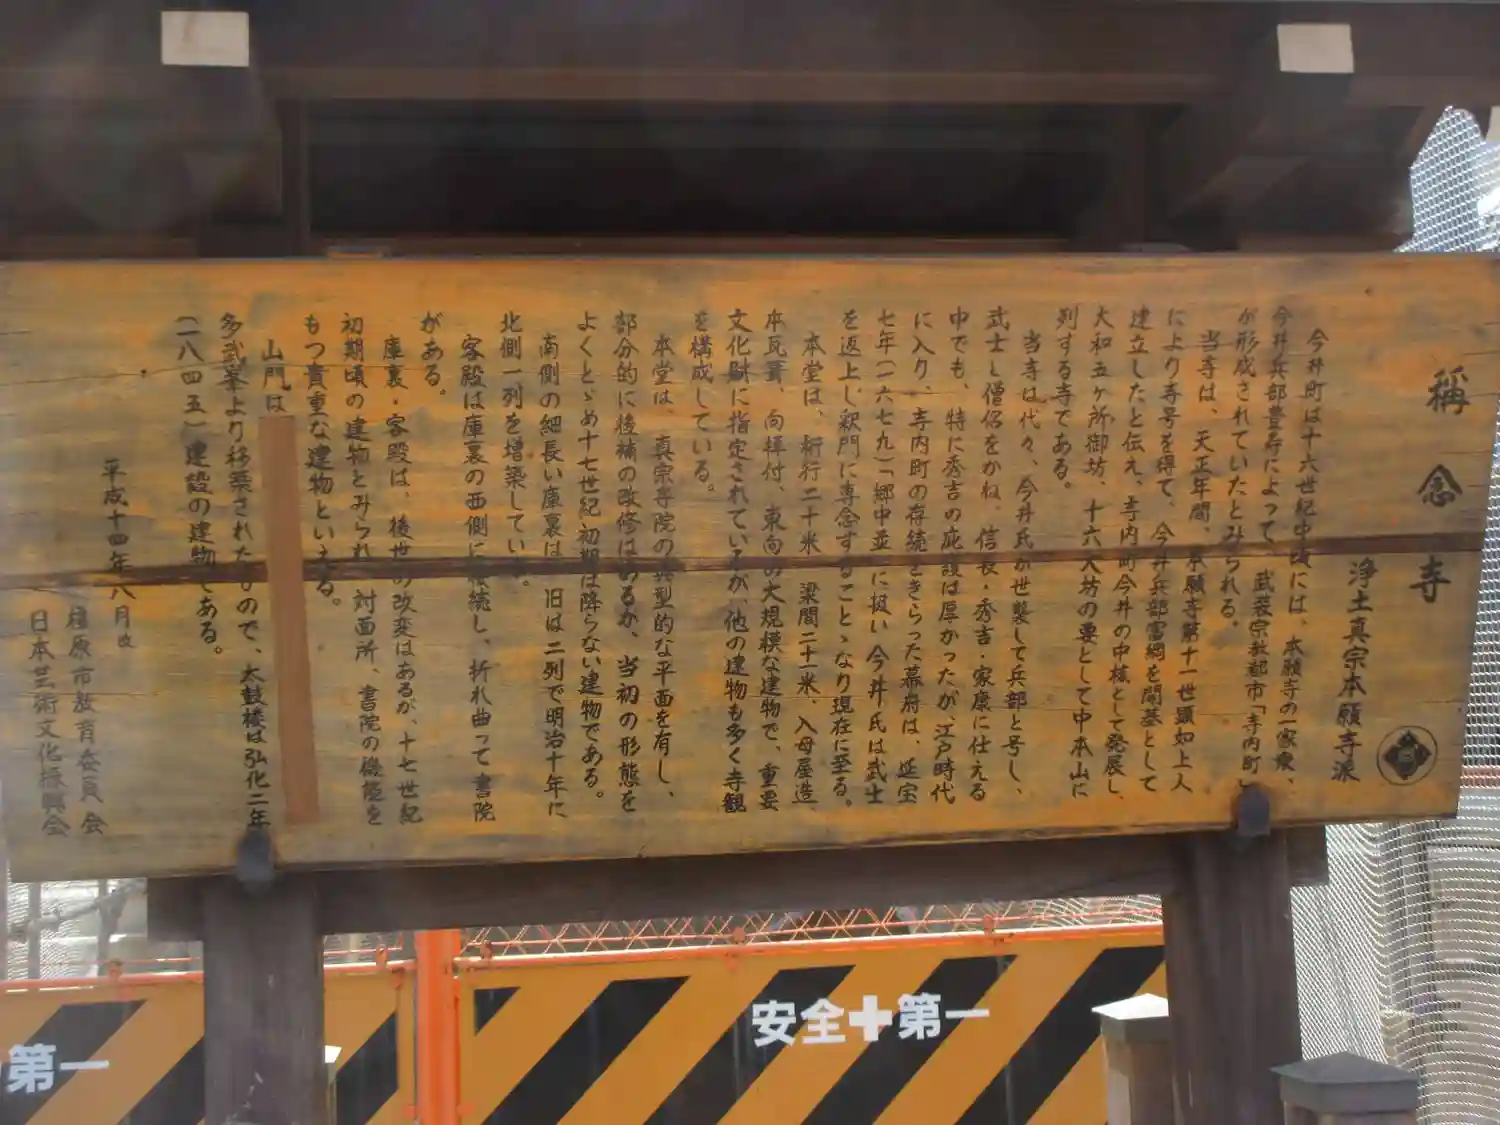 稱念寺
浄土真宗本願寺派
今井町は十六世紀中頃には、本願寺の一家衆、
今井兵部豊寿によって、武装宗教都市「寺内町」
が形成されていたとみられる。
当寺は、天正年間、本願寺第十一世顕如上人
により寺号を得て、今井兵部富綱を開基として
建立したと伝え、寺内町今井の中核として発展し、
大和五ヶ所御坊、十六大坊の要として中本山に
列する寺である。
当寺は代々、今井氏が世襲して兵部と号し、
武士と僧侶をかね、信長・秀吉・家康に仕える
中でも、特に秀吉の庇護は厚かったが、江戸時代
に入り、寺内町の存続をきらった幕府は、延宝
七年(一六七九)「郷中並」に扱い今井氏は武士
を返上し釈門に専念することゝなり現在に至る。
本堂は、桁行二十米 梁間二十一米、入母屋造
本瓦葺、向拝付、東向の大規模な建物で、重要
文化財に指定されているが、他の建物も多く寺観
を構成している。
本堂は、真宗寺院の典型的な平面を有し、
部分的に後補の改修はあるが、当初の形態を
よくとゞめ十七世紀初期は降らない建物である。
南側の細長い庫裏は、旧は二列で明治十年に
北側一列を増築している。
客殿は庫裏の西側に接続し、折れ曲って書院
がある。
庫裏・客殿は、後世の改変はあるが、十七世紀
初期頃の建物とみられ、対面所、書院の機能を
もつ貴重な建物といえる。
山門は
多武峯より移築されたもので、太鼓楼は弘化二年
(一八四五)建設の建物である。
平成十四年八月吉
橿原市教育委員会
日本芸術文化振興会
安全✚第一
第一